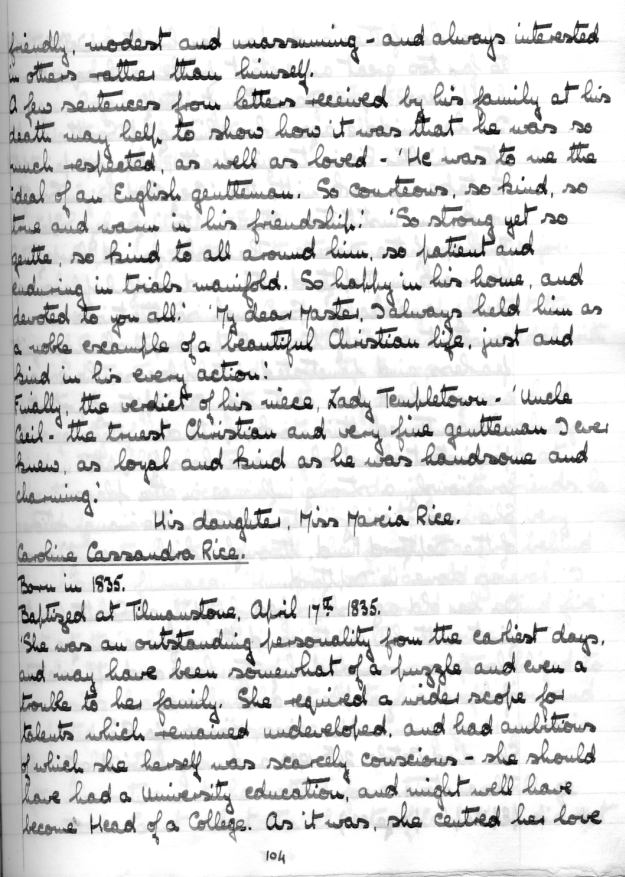 friendly, modest and unassuming - and always interested
in others rather than himself.
A few sentences from letters received by his family at his
death may help to show how it was that he was so
much respected, as well as loved - 'He was to me the
ideal of an English gentleman. So courteous, so kind, so
true and warm in his friendship.' 'So strong yet so
gentle, so kind to all around him, so patient and
enduring in trials manifold. So happy in his home, and
devoted to you all.' 'My dear Master, I always held him as
a noble example of a beautiful Christian life, just and
kind in his every action.'
Finally, the verdict of his niece, Lady Templetown - 'Uncle
Cecil - the truest Christian and very fine gentleman I ever
knew, as loyal and kind as he was handsome and
charming.'
His daughter, Miss Marcia Rice.
Caroline Cassandra Rice.
Born in 1835.
Baptized at Tilmanstone, April 17th 1835.
'She was an outstanding personality from the earliest days,
and may have been somewhat of a puzzle and even a
trouble to her family. She required a wider scope for
talents which remained undeveloped, and had ambitions
of which she herself was scarcely conscious - she should
have had a University education, and might well have
become Head of a College. As it was, she centred her love
104